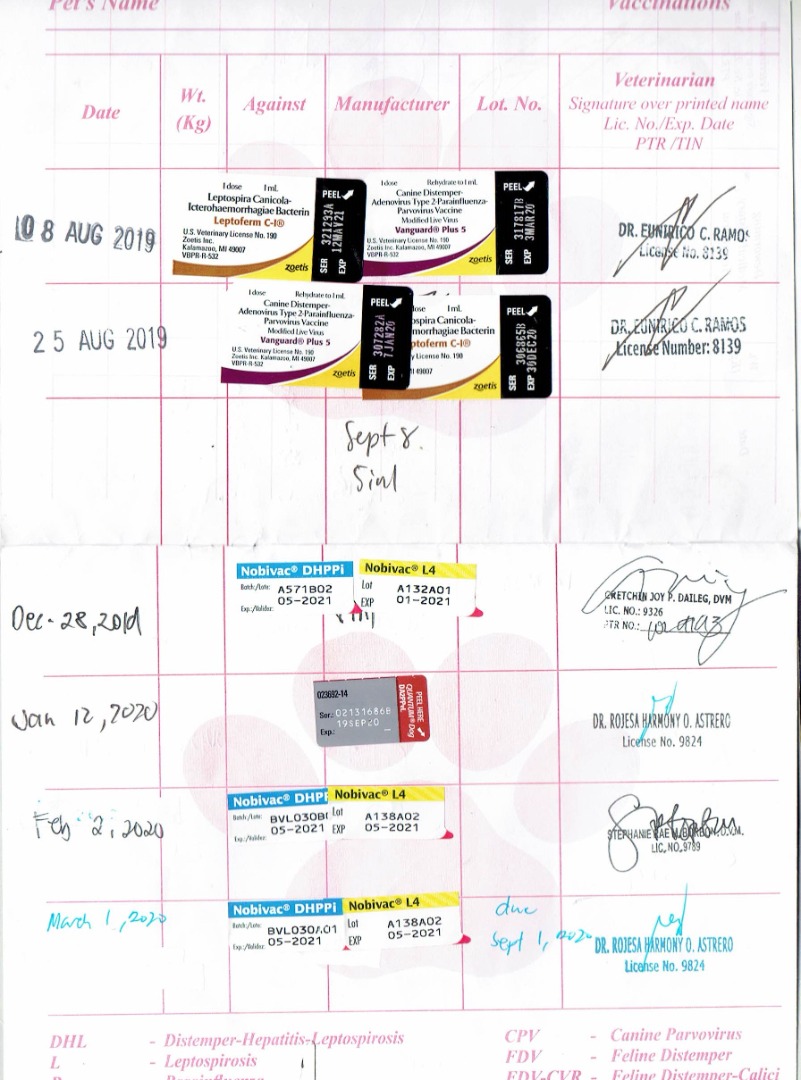 Pet's Name Vaccinations
Date
Wt.
(Kg)
Against
Manufacturer
Lot. No.
Veterinarian
Signature over printed name
Lic. No./Exp. Date
PTR /TIN
08 AUG 2019
1 dose 1 mL
Leptospira Canicola-
Icterohaemorrhagiae Bacterin
Leptoferm C-I®
U.S. Veterinary License No. 190
Zoetis Inc.
Kalamazoo, MI 49007
VBPR-R-532
zoetis
PEEL
SER 321293A
EXP 12MAY21
1 dose Rehydrate to 1 mL
Canine Distemper-
Adenovirus Type 2-Parainfluenza-
Parvovirus Vaccine
Modified Live Virus
Vanguard® Plus 5
U.S. Veterinary License No. 190
Zoetis Inc.
Kalamazoo, MI 49007
VBPR-R-532
zoetis
PEEL
SER 317817B
EXP 3MAR20
DR. EUNIRICO C. RAMOS
License No. 8139
25 AUG 2019
1 dose Rehydrate to 1 mL
Canine Distemper-
Adenovirus Type 2-Parainfluenza-
Parvovirus Vaccine
Modified Live Virus
Vanguard® Plus 5
U.S. Veterinary License No. 190
Zoetis Inc. Kalamazoo, MI 49007
VBPR-R-532
zoetis
PEEL
SER 307282A
EXP 7JAN20
1 mL
ospira Canicola-
morrhagiae Bacterin
ptoferm C-I®
y License No. 190
MI 49007
zoetis
PEEL
SER 306865B
EXP 30DEC20
DR. EUNIRICO C. RAMOS
License Number: 8139
Sept 8.
5in1
Dec. 28, 2019
Nobivac® DHPPi
Batch/Lote: A571B02
Exp./Validez: 05-2021
Nobivac® L4
Lot A132A01
EXP 01-2021
GRETCHIN JOY P. DAILEG, DVM
LIC. NO.: 9326
PTR NO.:
Jan 12, 2020
023692-14
Ser.: 02131686B
Exp.: 19SEP20
PEEL HERE
QUANTUM® Dog
DA2PPvL
DR. ROJESA HARMONY O. ASTRERO
License No. 9824
Feb 2, 2020
Nobivac® DHPP
Batch/Lote: BVL030B
Exp./Validez: 05-2021
Nobivac® L4
Lot A138A02
EXP 05-2021
STEPHANIE RAE D.V.M.
LIC. NO. 9789
March 1, 2020
Nobivac® DHPPi
Batch/Lote: BVL030A01
Exp./Validez: 05-2021
Nobivac® L4
Lot A138A02
EXP 05-2021
due
Sept 1, 2020
DR. ROJESA HARMONY O. ASTRERO
License No. 9824
DHL - Distemper-Hepatitis-Leptospirosis
L - Leptospirosis
CPV - Canine Parvovirus
FDV - Feline Distemper
FDV-CVR - Feline Distemper-Calici